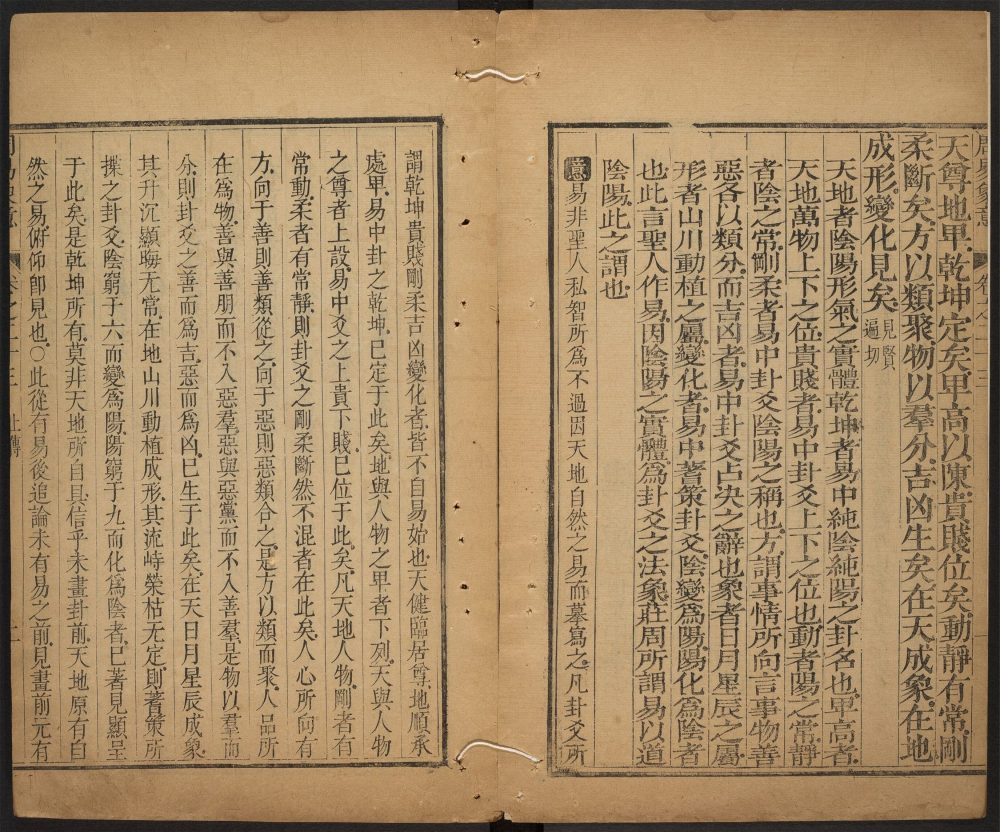 天尊地卑乾坤定矣卑高以陳貴賤位矣動靜有常剛
柔斷矣方以類聚物以羣分吉凶生矣在天成象在地
成形變化見矣見賢遍切
天地者陰陽形氣之實體乾坤者易中純陰純陽之卦名也卑高者
天地萬物上下之位貴賤者易中卦爻上下之位也動者陽之常靜
者陰之常剛柔者易中卦爻陰陽之稱也方謂事情所向言事物善
惡各以類分而吉凶者易中卦爻占決之辭也象者日月星辰之屬
形者山川動植之屬變化者易中蓍策卦爻陰變為陽陽化為陰者
也此言聖人作易因陰陽之實體為卦爻之法象莊周所謂易以道
陰陽此之謂也
意易非聖人私智所為不過因天地自然之易而摹寫之凡卦爻所
謂乾坤貴賤剛柔吉凶變化者皆不自易始也天健臨居尊地順承
處卑易中卦之乾坤已定于此矣地與人物之卑者下列天與人物
之尊者上設易中爻之上貴下賤已位于此矣凡天地人物剛者有
常動柔者有常靜則卦爻之剛柔斷然不混者在此矣人心所向有
方向于善則善類從之向于惡則惡類合之是方以類而聚人品所
在為物善與善朋而不入惡羣惡與惡黨而不入善羣是物以羣而
分則卦爻之善而為吉惡而為凶已生于此矣在天日月星辰成象
其升沉顯晦无常在地山川動植成形其流峙榮枯无定則蓍策所
揲之卦爻陰窮于六而變為陽陽窮于九而化為陰者已著見顯呈
于此矣是乾坤所有莫非天地所自具信乎未畫卦前天地原有自
然之易俯仰卽見也○此從有易後追論未有易之前見畫前元有
卷之二十三 上傳